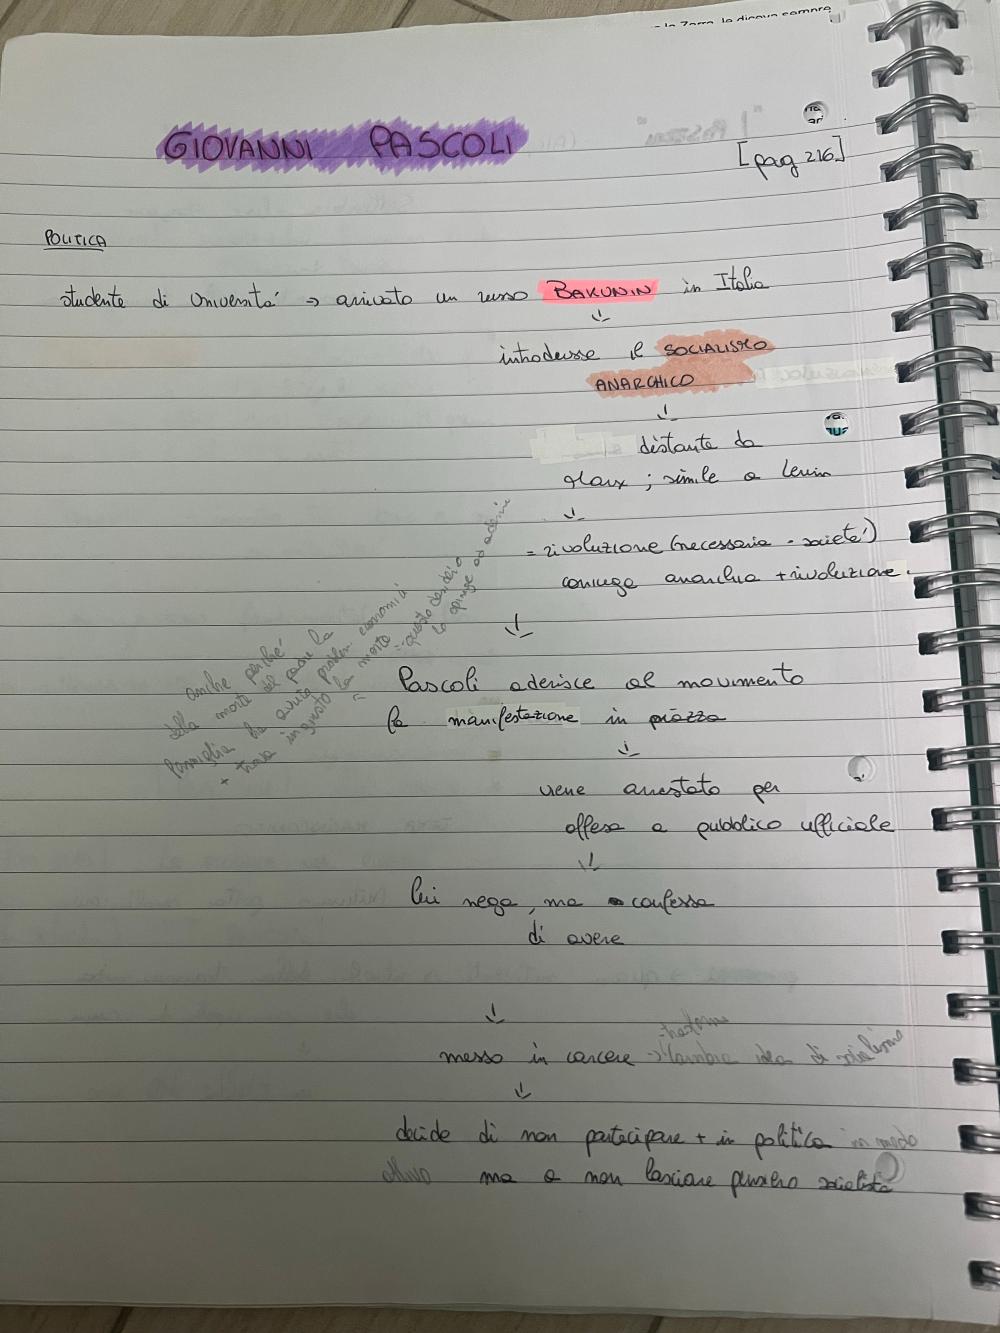 la Terra, lo diceva sempre
GIOVANNI PASCOLI
[pag 216]
POLITICA
studente di Università → arrivato un russo BAKUNIN in Italia
↓
introdusse il SOCIALISMO
ANARCHICO
↓
distante da
Marx ; simile a Lenin
↓
= rivoluzione (necessaria - società)
coniuga anarchia + rivoluzione.
↓
anche perché
della morte del padre la
famiglia ha avuto problemi economici
+ trova ingiusto la morte = questo desiderio
lo spinge ad aderire
Pascoli aderisce al movimento
fa manifestazione in piazza
↓
viene arrestato per
offesa a pubblico ufficiale
↓
lui nega, ma confessa
di avere
↓
messo in carcere
idea di socialismo
↓
decide di non partecipare + in politica in modo
attivo ma a non lasciare pensiero socialista